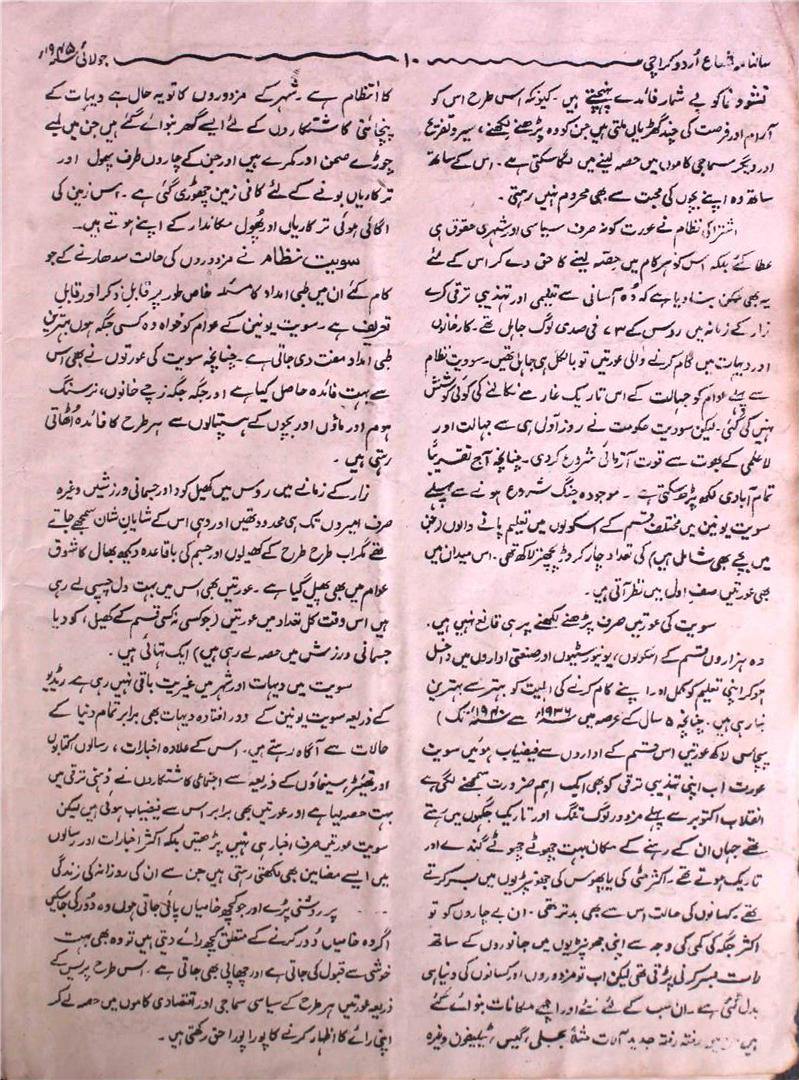 سالنامہ شعاع اُردو کراچی ۱۰ جولائی ۱۹۴۵ء
نشوونما کو بے شمار فائدے پہنچتے ہیں۔ کیونکہ اس طرح اس کو
آرام اور فرصت کی چند گھڑیاں ملتی ہیں جن کو وہ پڑھنے لکھنے، سیر و تفریح
اور دیگر سماجی کاموں میں حصہ لینے میں لگا سکتی ہے۔ اس کے ساتھ
ساتھ وہ اپنے بچوں کی محبت سے بھی محروم نہیں رہتی۔
اشتراکی نظام نے عورت کو نہ صرف سیاسی اور شہری حقوق ہی
عطا کئے بلکہ اس کو ہر کام میں حصہ لینے کا حق دے کر اس کے لئے
یہ بھی ممکن بنا دیا ہے کہ وہ آسانی سے تعلیمی اور تہذیبی ترقی کرے
زار کے زمانہ میں روس کے ۷۳ فی صدی لوگ جاہل تھے۔ کارخانوں
اور دیہات میں کام کرنے والی عورتیں تو بالکل ہی جاہل تھیں۔ سوویت نظام
سے پہلے عوام کو جہالت کے اس تاریک غار سے نکالنے کی کوئی کوشش
نہیں کی گئی۔ لیکن سوویت حکومت نے روز اول ہی سے جہالت اور
لاعلمی کے بھوت سے قوت آزمائی شروع کردی۔ چنانچہ آج تقریباً
تمام آبادی لکھ پڑھ سکتی ہے۔ موجودہ جنگ شروع ہونے سے پہلے
سویت یونین میں مختلف قسم کے اسکولوں میں تعلیم پانے والوں (جن
میں بچے بھی شامل ہیں) کی تعداد چار کروڑ پچھتر لاکھ تھی۔ اس میدان میں
بھی عورتیں صف اول میں نظر آتی ہیں۔
سویت کی عورتیں صرف پڑھنے لکھنے پر ہی قانع نہیں ہیں۔
وہ ہزاروں قسم کے اسکولوں، یونیورسٹیوں اور صنعتی اداروں میں داخل
ہوکر اپنی تعلیم کو مکمل اور اپنے کام کرنے کی اہلیت کو بہتر سے بہترین
بنا رہی ہیں۔ چنانچہ ۵ سال کے عرصہ میں ۱۹۳۶ء سے ۱۹۴۰ء تک)
پچاس لاکھ عورتیں اس قسم کے اداروں سے فیضیاب ہوئیں سویت
عورت اب اپنی تہذیبی ترقی کو بھی ایک اہم ضرورت سمجھنے لگی ہے
انقلاب اکتوبر سے پہلے مزدور لوگ تنگ اور تاریک جگہوں میں رہتے
تھے جہاں ان کے رہنے کے مکان بہت چھوٹے چھوٹے گندے اور
تاریک ہوتے تھے۔ اکثر مٹی کی یا پھوس کی جھونپڑیوں میں بسر کرتے
تھے۔ کسانوں کی حالت اس سے بھی بدتر تھی۔ ان بے چاروں کو تو
اکثر جگہ کی کمی کی وجہ سے اپنی جھونپڑیوں میں جانوروں کے ساتھ
رات بسر کرنی پڑتی تھی لیکن اب تو مزدوروں اور کسانوں کی دنیا ہی
بدل گئی ہے۔ ان سب کے لئے نئے اور اچھے مکانات بنوائے گئے
ہیں جن میں رفتہ رفتہ جدید آلات مثلاً بجلی، گیس، ٹیلیفون وغیرہ
کا انتظام ہے۔ شہر کے مزدوروں کا تو یہ حال ہے دیہات کے
پنچائتی کاشتکاروں کے لئے ایسے گھر بنوائے گئے ہیں جن میں لمبے
چوڑے صحن اور کمرے ہیں اور جن کے چاروں طرف پھول اور
ترکاریاں بونے کے لئے کافی زمین چھوڑی گئی ہے۔ اس زمین کی
اگائی ہوئی ترکاریاں اور پھول مکاندار کے اپنے ہوتے ہیں۔
سویت نظام نے مزدوروں کی حالت سدھارنے کے جو
کام کئے ان میں طبی امداد کا مسئلہ خاص طور پر قابل ذکر اور قابل
تعریف ہے۔ سویت یونین کے عوام کو خواہ وہ کسی جگہ ہوں بہترین
طبی امداد مفت دی جاتی ہے۔ چنانچہ سویت کی عورتوں نے بھی اس
سے بہت فائدہ حاصل کیا ہے اور جگہ جگہ زچے خانوں، نرسنگ
ہوم اور ماؤں اور بچوں کے ہسپتالوں سے ہر طرح کا فائدہ اُٹھاتی
رہتی ہیں۔
زار کے زمانے میں روس میں کھیل کود اور جسمانی ورزشیں وغیرہ
صرف امیروں تک ہی محدود تھیں اور وہی اس کے شایان شان سمجھے جاتے
تھے مگر اب طرح طرح کے کھیلوں اور جسم کی باقاعدہ دیکھ بھال کا شوق
عوام میں بھی پھیل گیا ہے۔ عورتیں بھی اس میں بہت دل چسپی لے رہی
ہیں اس وقت کل تعداد میں عورتیں (جو کسی نہ کسی قسم کے کھیل، کود یا
جسمانی ورزش میں حصہ لے رہی ہیں) ایک تہائی ہیں۔
سویت میں دیہات اور شہر میں غیریت باقی نہیں رہی ہے ریڈیو
کے ذریعہ سویت یونین کے دور افتادہ دیہات بھی برابر تمام دنیا کے
حالات سے آگاہ رہتے ہیں۔ اس کے علاوہ اخبارات، رسالوں، کتابوں
اور تھیٹر، سینماؤں کے ذریعہ سے اجتماعی کاشتکاروں نے ذہنی ترقی میں
بہت حصہ لیا ہے اور عورتیں بھی برابر اس سے فیضیاب ہوئی ہیں لیکن
سویت عورتیں صرف اخبار ہی نہیں پڑھتیں بلکہ اکثر اخبارات اور رسالوں
میں ایسے مضامین بھی لکھتی رہتی ہیں جن سے ان کی روزانہ کی زندگی
پر روشنی پڑے اور جو کچھ خامیاں پائی جاتی ہوں وہ دُور کی جاسکیں
اگر وہ خامیاں دُور کرنے کے متعلق کچھ رائے دیتی ہیں تو وہ بھی بہت
خوشی سے قبول کی جاتی ہے اور چھاپی بھی جاتی ہے۔ اس طرح پریس کے
ذریعہ عورتیں ہر طرح کے سیاسی سماجی اور اقتصادی کاموں میں حصہ لے کر
اپنی رائے کا اظہار کرنے کا پورا پورا حق رکھتی ہیں۔